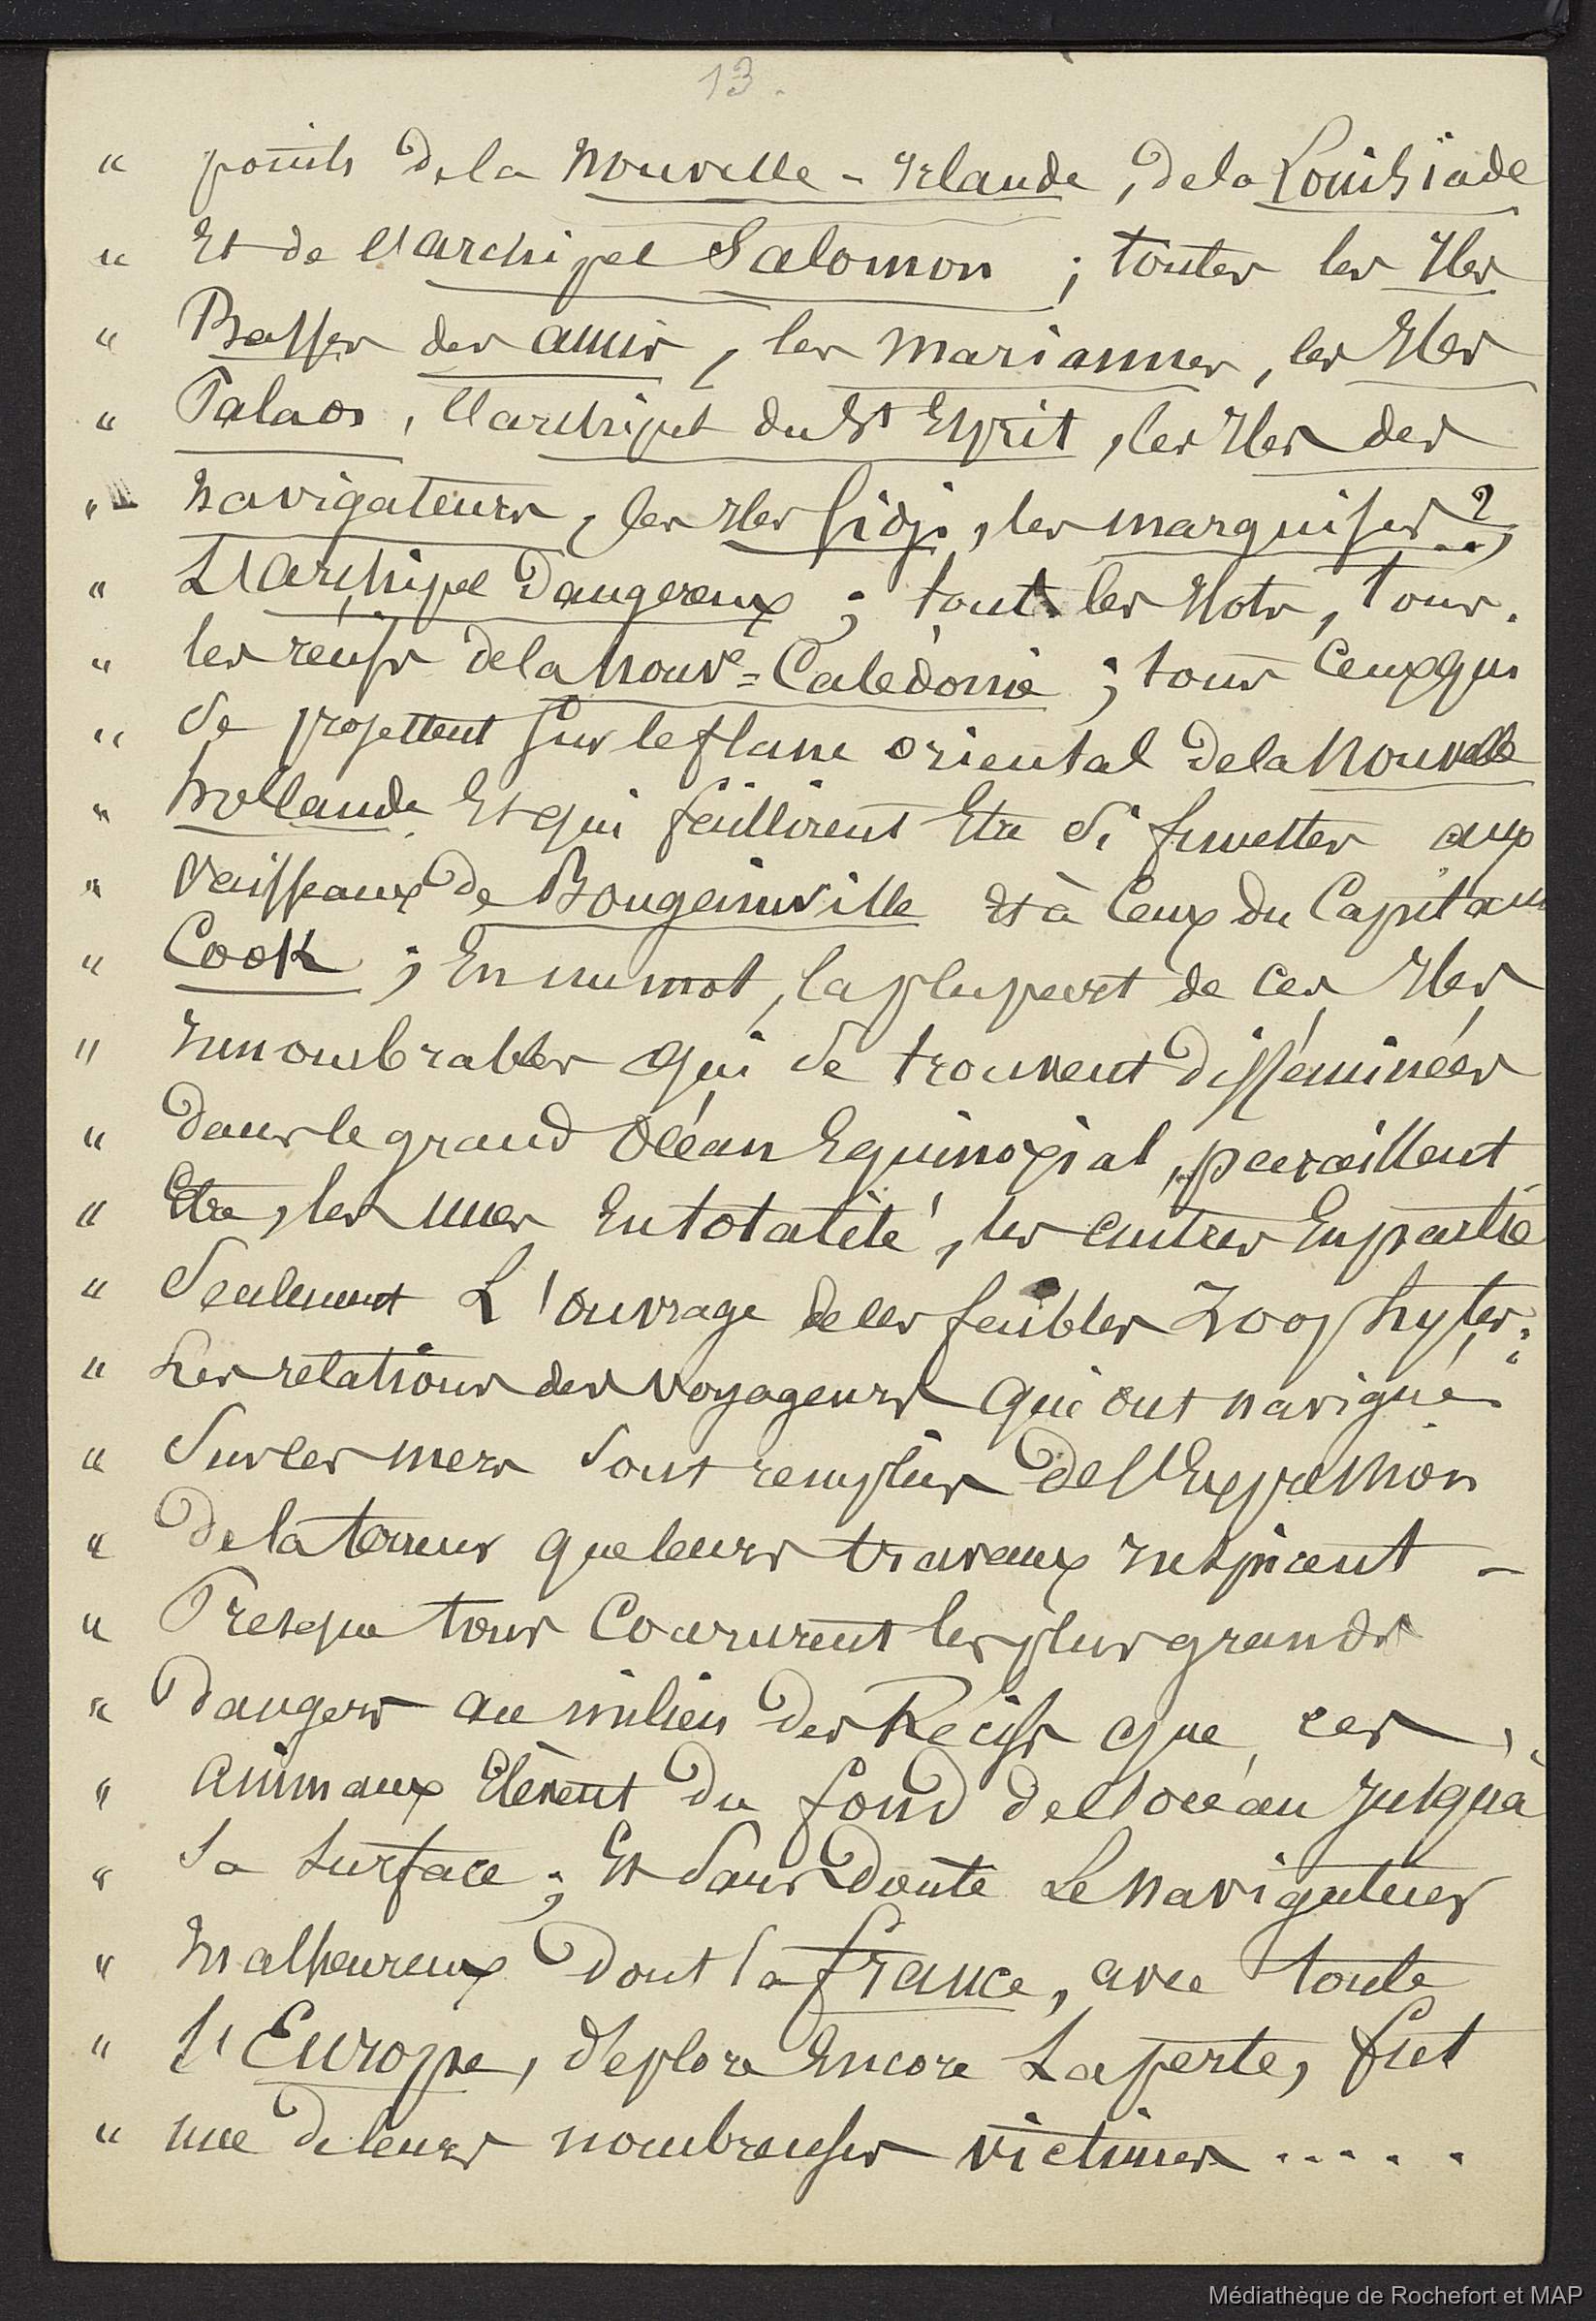 13.
" points de la Nouvelle-Irlande, de la Louisiade
" Et de l'archipel Salomon ; toutes les Iles
" Basses des amis, les mariannes, les Iles
" Palaos, l'archipel du St Esprit, les Iles des
" Navigateurs, les Iles fidji, les marquises ?..,
" L'archipel Dangereux ; tout les Ilots, tous
" les récifs de la Nouve=Calédonie ; tous ceux qui
" Se projettent sur le flanc oriental de la Nouvelle
" hollande Et qui faillirent Etre Si funestes aux
" Vaisseaux de Bougainville Et à Ceux du Capitaine
" Cook ; En un mot, la plupart de Ces Iles
" Innombrables qui Se trouvent Disséminées
" Dans le grand Océan Equinoxial, paraissent
" Etre, les unes En totalité, les autres En partie
" Seulement L'ouvrage de ces faibles Zoophytes ;
" Les relations des voyageurs qui ont navigué
" Sur ces mers Sont remplies De l'Expression
" De la terreur que leurs travaux Inspirent -
" Presque tous Coururent les plus grands
" Dangers au milieu Des Récifs que ces
" Animaux Elèvent Du fond de l'océan Jusqu'à
" Sa Surface ; Et Sans Doute Le Navigateur
" Malheureux Dont la france, avec toute
" L'Europe, déplore Encore La perte, fut
" une De leurs nombreuses victimes . . . . .
Médiathèque de Rochefort et MAP